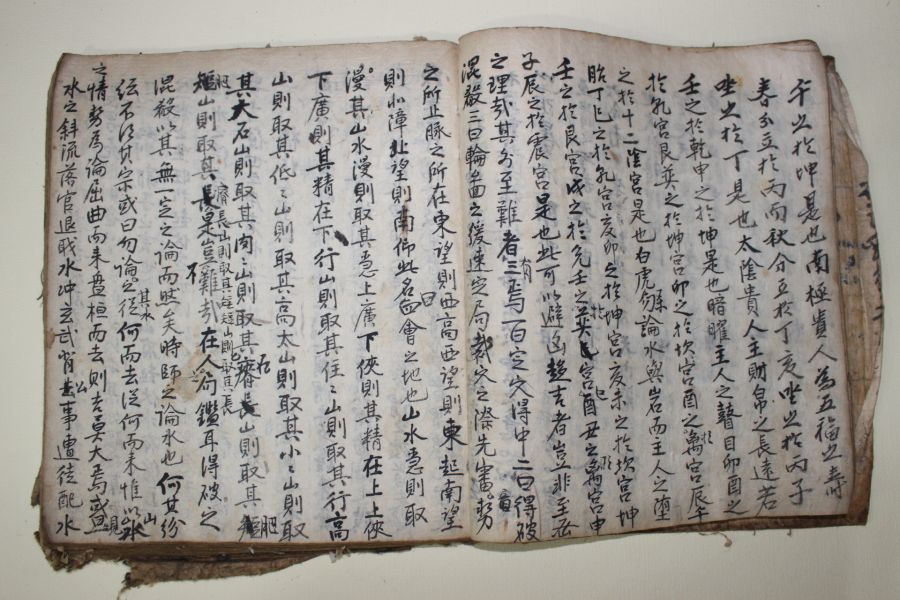 午之於坤是也南極貴人為五福之壽
春分立於丙而秋分立於丁亥坐之於丙子
坐之於丁是也太陰貴人主財帛之長遠若
壬之於乾申之於坤是也暗曜主人之瞽目卯酉之
於乳宮艮巽之於坤宮卯之於坎宮酉之於离宮辰午
之於十二陰宮是也右虎係論水與岩而主人之墮
胎丁巳之於乳宮亥卯之於坤宮亥未之於坎宮坤
壬之於艮宮戌之於兌壬之巽宮酉丑之离宮申
子辰之於震宮是也此可以避凶趨吉者豈非至
之理哉其外至難者有三焉一曰定穴得中二曰得破
混殺三曰輪啚之緩速定局裁穴之際先審其勢
之所止脉之所在東望則西高西望則東起南望
則北障北望則南仰此名曰四會之地也山水急則取
漫其山水漫則取其急上廣下俠則其精在上上俠
下廣則其精在下行山則取其住々山則取其行高
山則取其低々山則取其高太山則取其小々山則取
其大石山則取其肉々山則取其石瘠長山則取其肥
短山則取其長是豈不難哉在人局鑑耳得破之
混殺以其無一定之論而眩矣時師之論水也何其紛
紜不得其宗或曰勿論其水之從何而去從何而來惟以水
之情勢為論屈曲而來盘桓而去則吉莫大焉或
水之斜流落官退職水冲玄武背公事遭徒配水